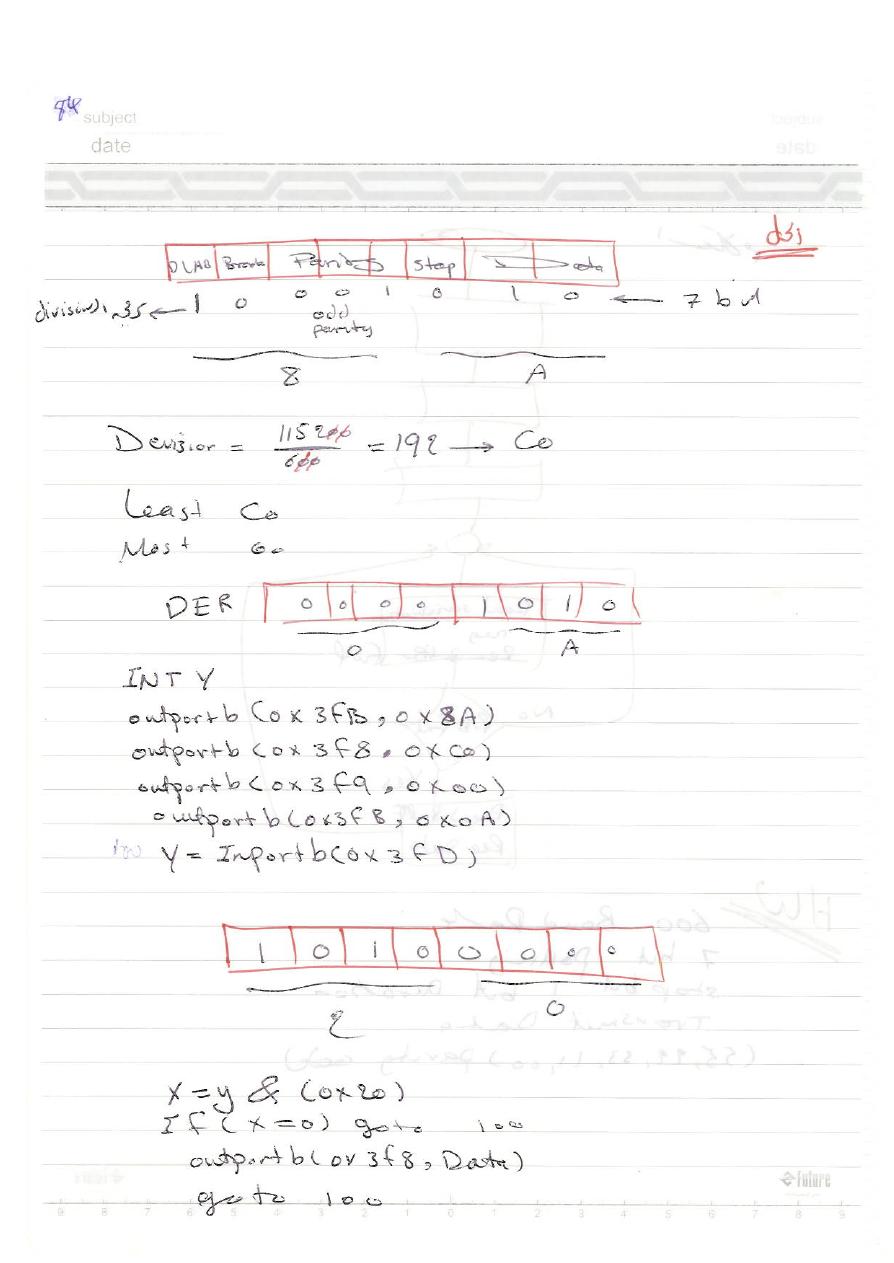 94
subject
date
DLAB Break Parity stop Data
1 0 0 0 1 0 1 0 ← 7 bit
odd
parity
8 A
Devisior = 115200 / 600 = 192 → C0
Least C0
Most 00
DER 0 0 0 0 1 0 1 0
0 A
INT Y
outportb (0x3fB, 0x8A)
outportb (0x3f8, 0xC0)
outportb (0x3f9, 0x00)
outportb (0x3fB, 0x0A)
Y = Inportb(0x3fD)
1 0 1 0 0 0 0 0
2 0
X = y & (0x20)
If (X=0) goto 100
outportb(0x3f8, Data)
goto 100
future
9 8 7 6 5 4 3 2 1 0 1 2 3 4 5 6 7 8 9